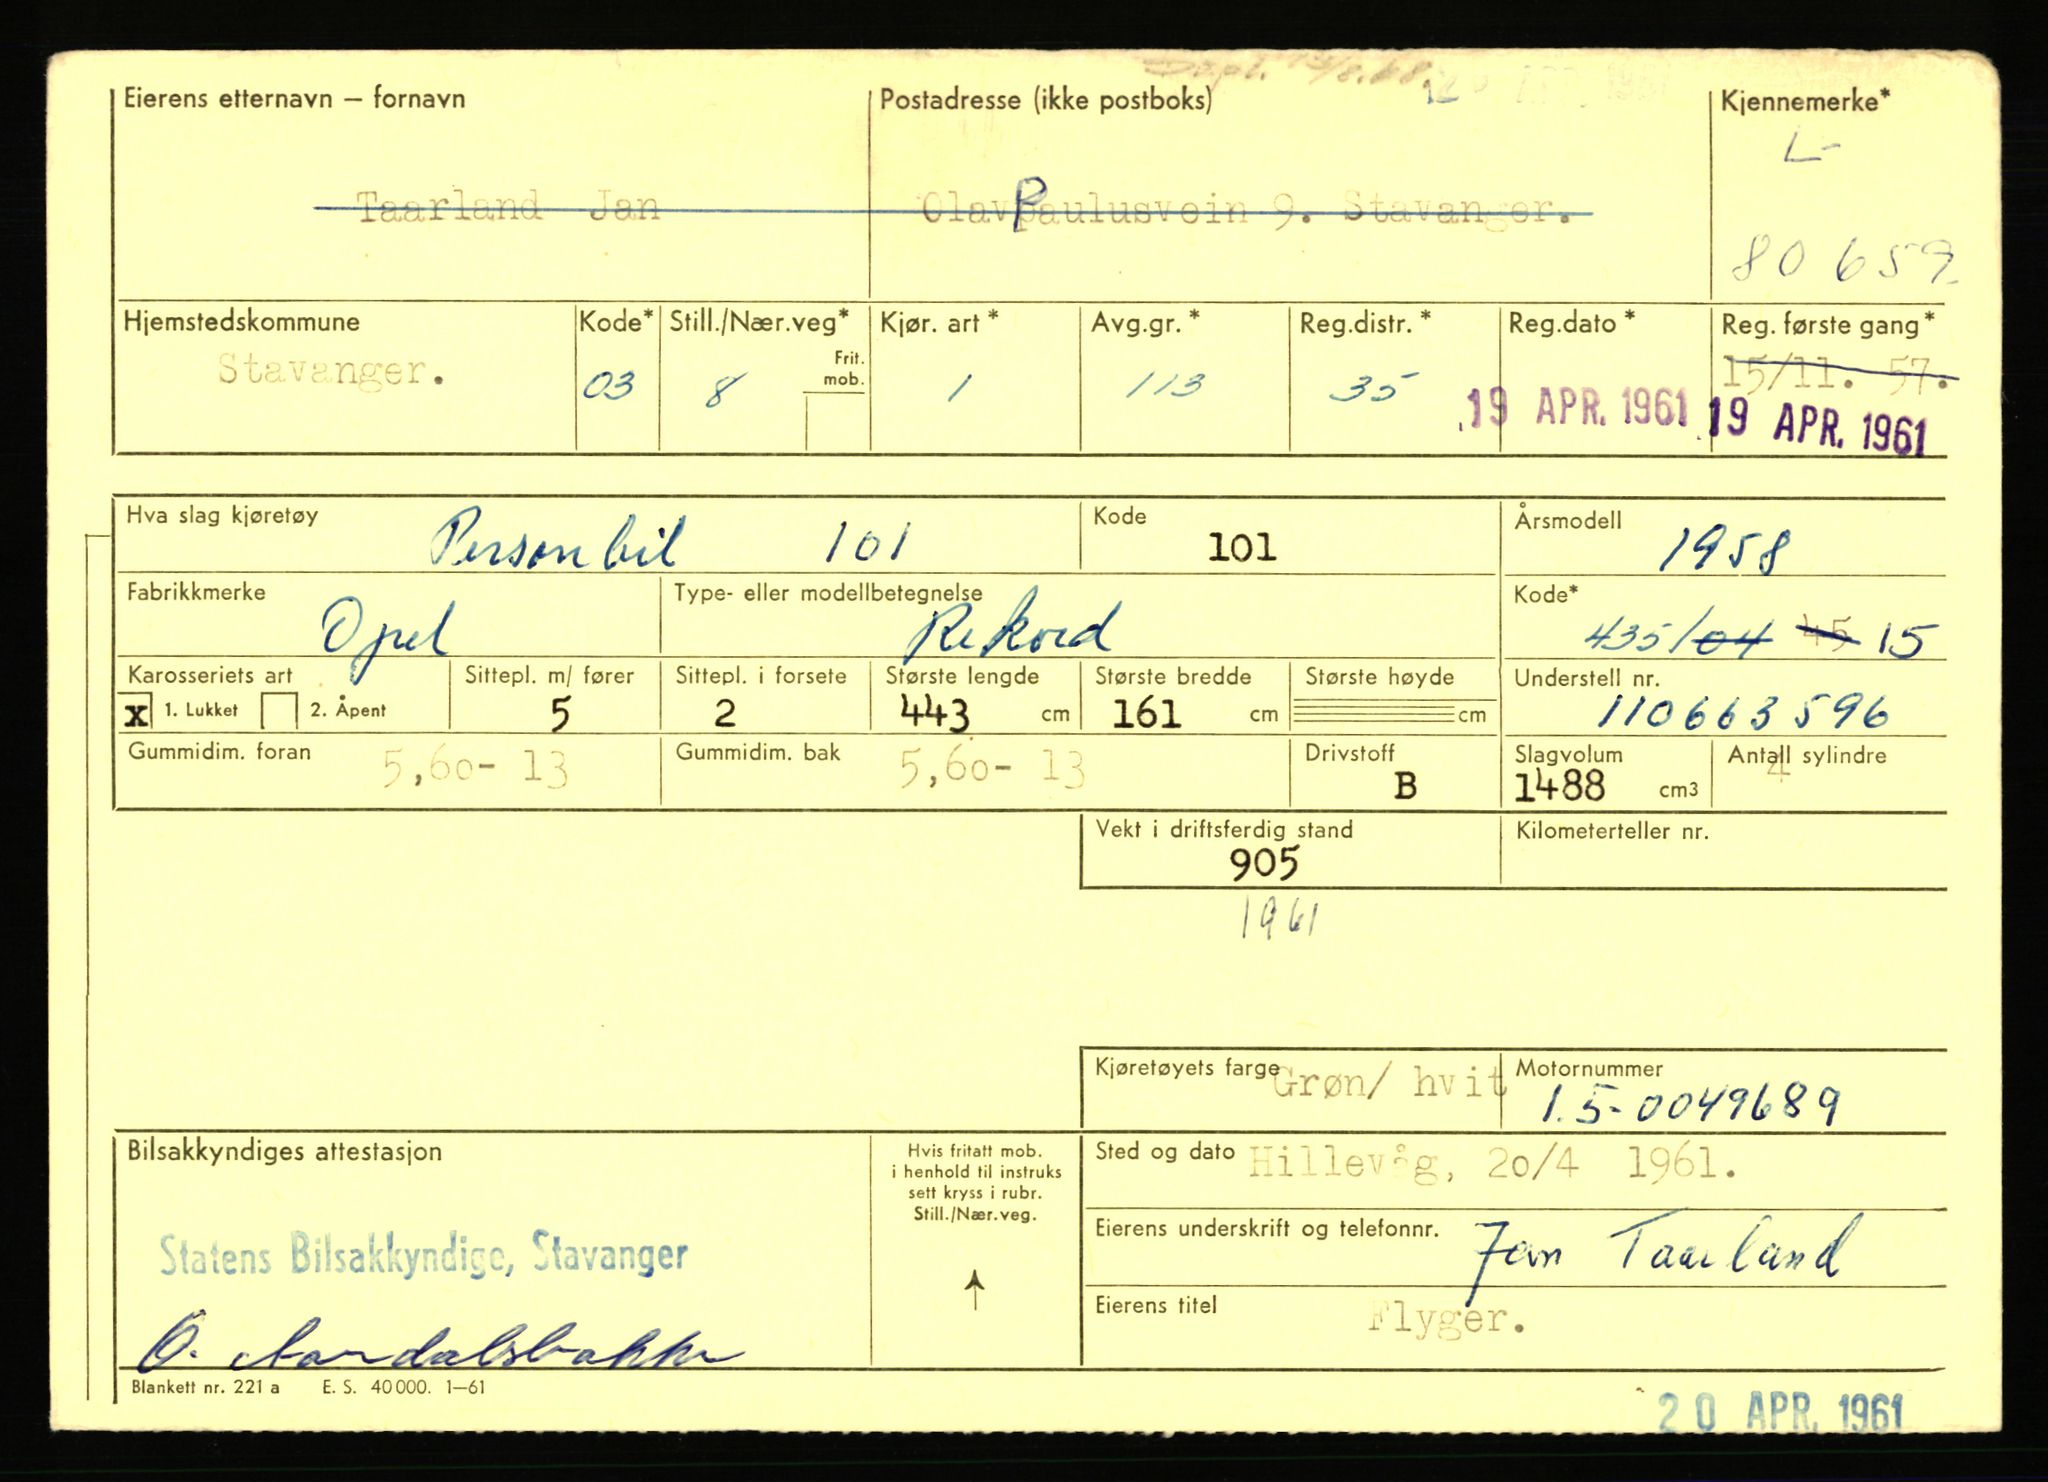 Eierens etternavn – fornavn
Postadresse (ikke postboks)
Kjennemerke*
L-
Taarland Jan
Olav Paulusvein 9. Stavanger.
80 659
Hjemstedskommune
Kode*
Still./Nær.veg*
Kjør. art *
Avg.gr. *
Reg.distr. *
Reg.dato *
Reg. første gang *
Stavanger.
03
8
Frit. mob.
1
113
35
19 APR. 1961
15/11. 57.
19 APR. 1961
Hva slag kjøretøy
Personbil 101
Kode
101
Årsmodell
1958
Fabrikkmerke
Opel
Type- eller modellbetegnelse
Rekord
Kode*
435/04 45 15
Karosseriets art
x 1. Lukket 2. Åpent
Sittepl. m/ fører
5
Sittepl. i forsete
2
Største lengde
443 cm
Største bredde
161 cm
Største høyde
cm
Understell nr.
110663596
Gummidim. foran
5,60- 13
Gummidim. bak
5,60- 13
Drivstoff
B
Slagvolum
1488 cm3
Antall sylindre
4
Vekt i driftsferdig stand
905
Kilometerteller nr.
1961
Kjøretøyets farge
Grøn/ hvit
Motornummer
1.5-0049689
Bilsakkyndiges attestasjon
Hvis fritatt mob.
i henhold til instruks
sett kryss i rubr.
Still./Nær.veg.
Sted og dato
Hillevåg, 20/4 1961.
Eierens underskrift og telefonnr.
Jan Taarland
Statens Bilsakkyndige, Stavanger
Eierens titel
Flyger.
O. Aardalsbakke
Blankett nr. 221 a E. S. 40 000. 1–61
20 APR. 1961